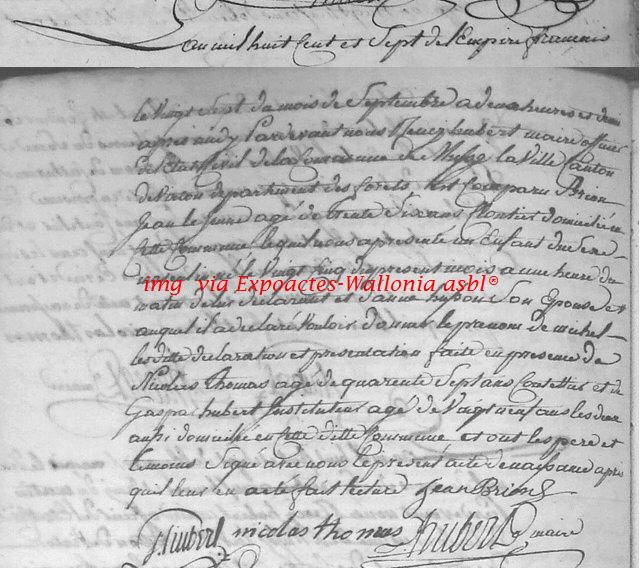 an mil huit Cent et Sept de l'Empire francais
le vingt Sept du mois de Septembre a deux heures et demi
apres midy Pardevant nous hubert maire officier
de l'Etat Civil de la Commune de la Ville Canton
de departement des forets Est Comparu Brion
Jean le Jeune agé de trente Six ans domicilié en
Cette Commune lequel nous a presenté un Enfant du Sexe
né le vingt Cinq du present mois a une heure du
matin de lui declarant et d'anne husson Son Epouse et
auquel il a declaré vouloir donner le prenom de michel
les ditte declaration et presentation faite en presence de
Nicolas Thomas agé de quarente Sept ans et de
Gaspar hubert Instituteur agé de vingt neuf ans les deux
aussi domicilié en Cette ditte Commune et ont les pere et
temoins Signé avec nous le present acte de naissance apres
quil leur en a eté fait lecture Jean Brion
img via Expoactes-Wallonia asbl®
G hubert nicolas thomas hubert maire